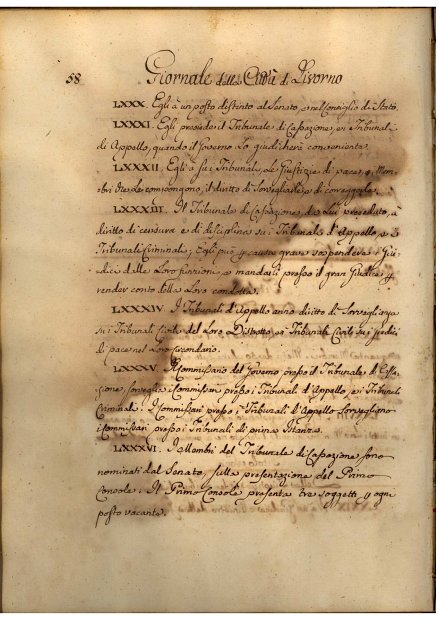 58 Giornale della Città di Livorno
LXXX. Egli à un posto distinto al Senato, e nel Consiglio di Stato.
LXXXI. Egli presiede il Tribunale di Cassazione, e i Tribunali
di Appello, quando il Governo lo giudicherà conveniente.
LXXXII. Egli à su i Tribunali, e le Giustizie di pace, e i Mem-
bri che le compongono, il diritto di sorvegliarle e di correggerle.
LXXXIII. Il Tribunale di Cassazione da Lui preseduto, à
diritto di censura e di disciplina su i Tribunali d'Appello e i
Tribunali Criminali; Egli può p causa grave sospendere i Giu-
dici dalle Loro funzioni, e mandarli presso il gran Giudice p
render conto della Loro condotta.
LXXXIV. I Tribunali d'Appello anno diritto di Sorveglianza
su i Tribunali Civili del Loro Distretto, e i Tribunali Civili su i Giudici
di pace nel Loro Circondario.
LXXXV. Il Commissario del Governo presso il Tribunale di Cassa-
zione, sorveglia i Commissari presso i Tribunali d'Appello, e i Tribunali
Criminali. I Commissari presso i Tribunali d'Appello Sorvegliano
i Commissari presso i Tribunali di prima Istanza.
LXXXVI. I Membri del Tribunale di Cassazione sono
nominati dal Senato, sulla presentazione del Primo
Console. Il Primo Console presenta tre soggetti p ogni
posto vacante.